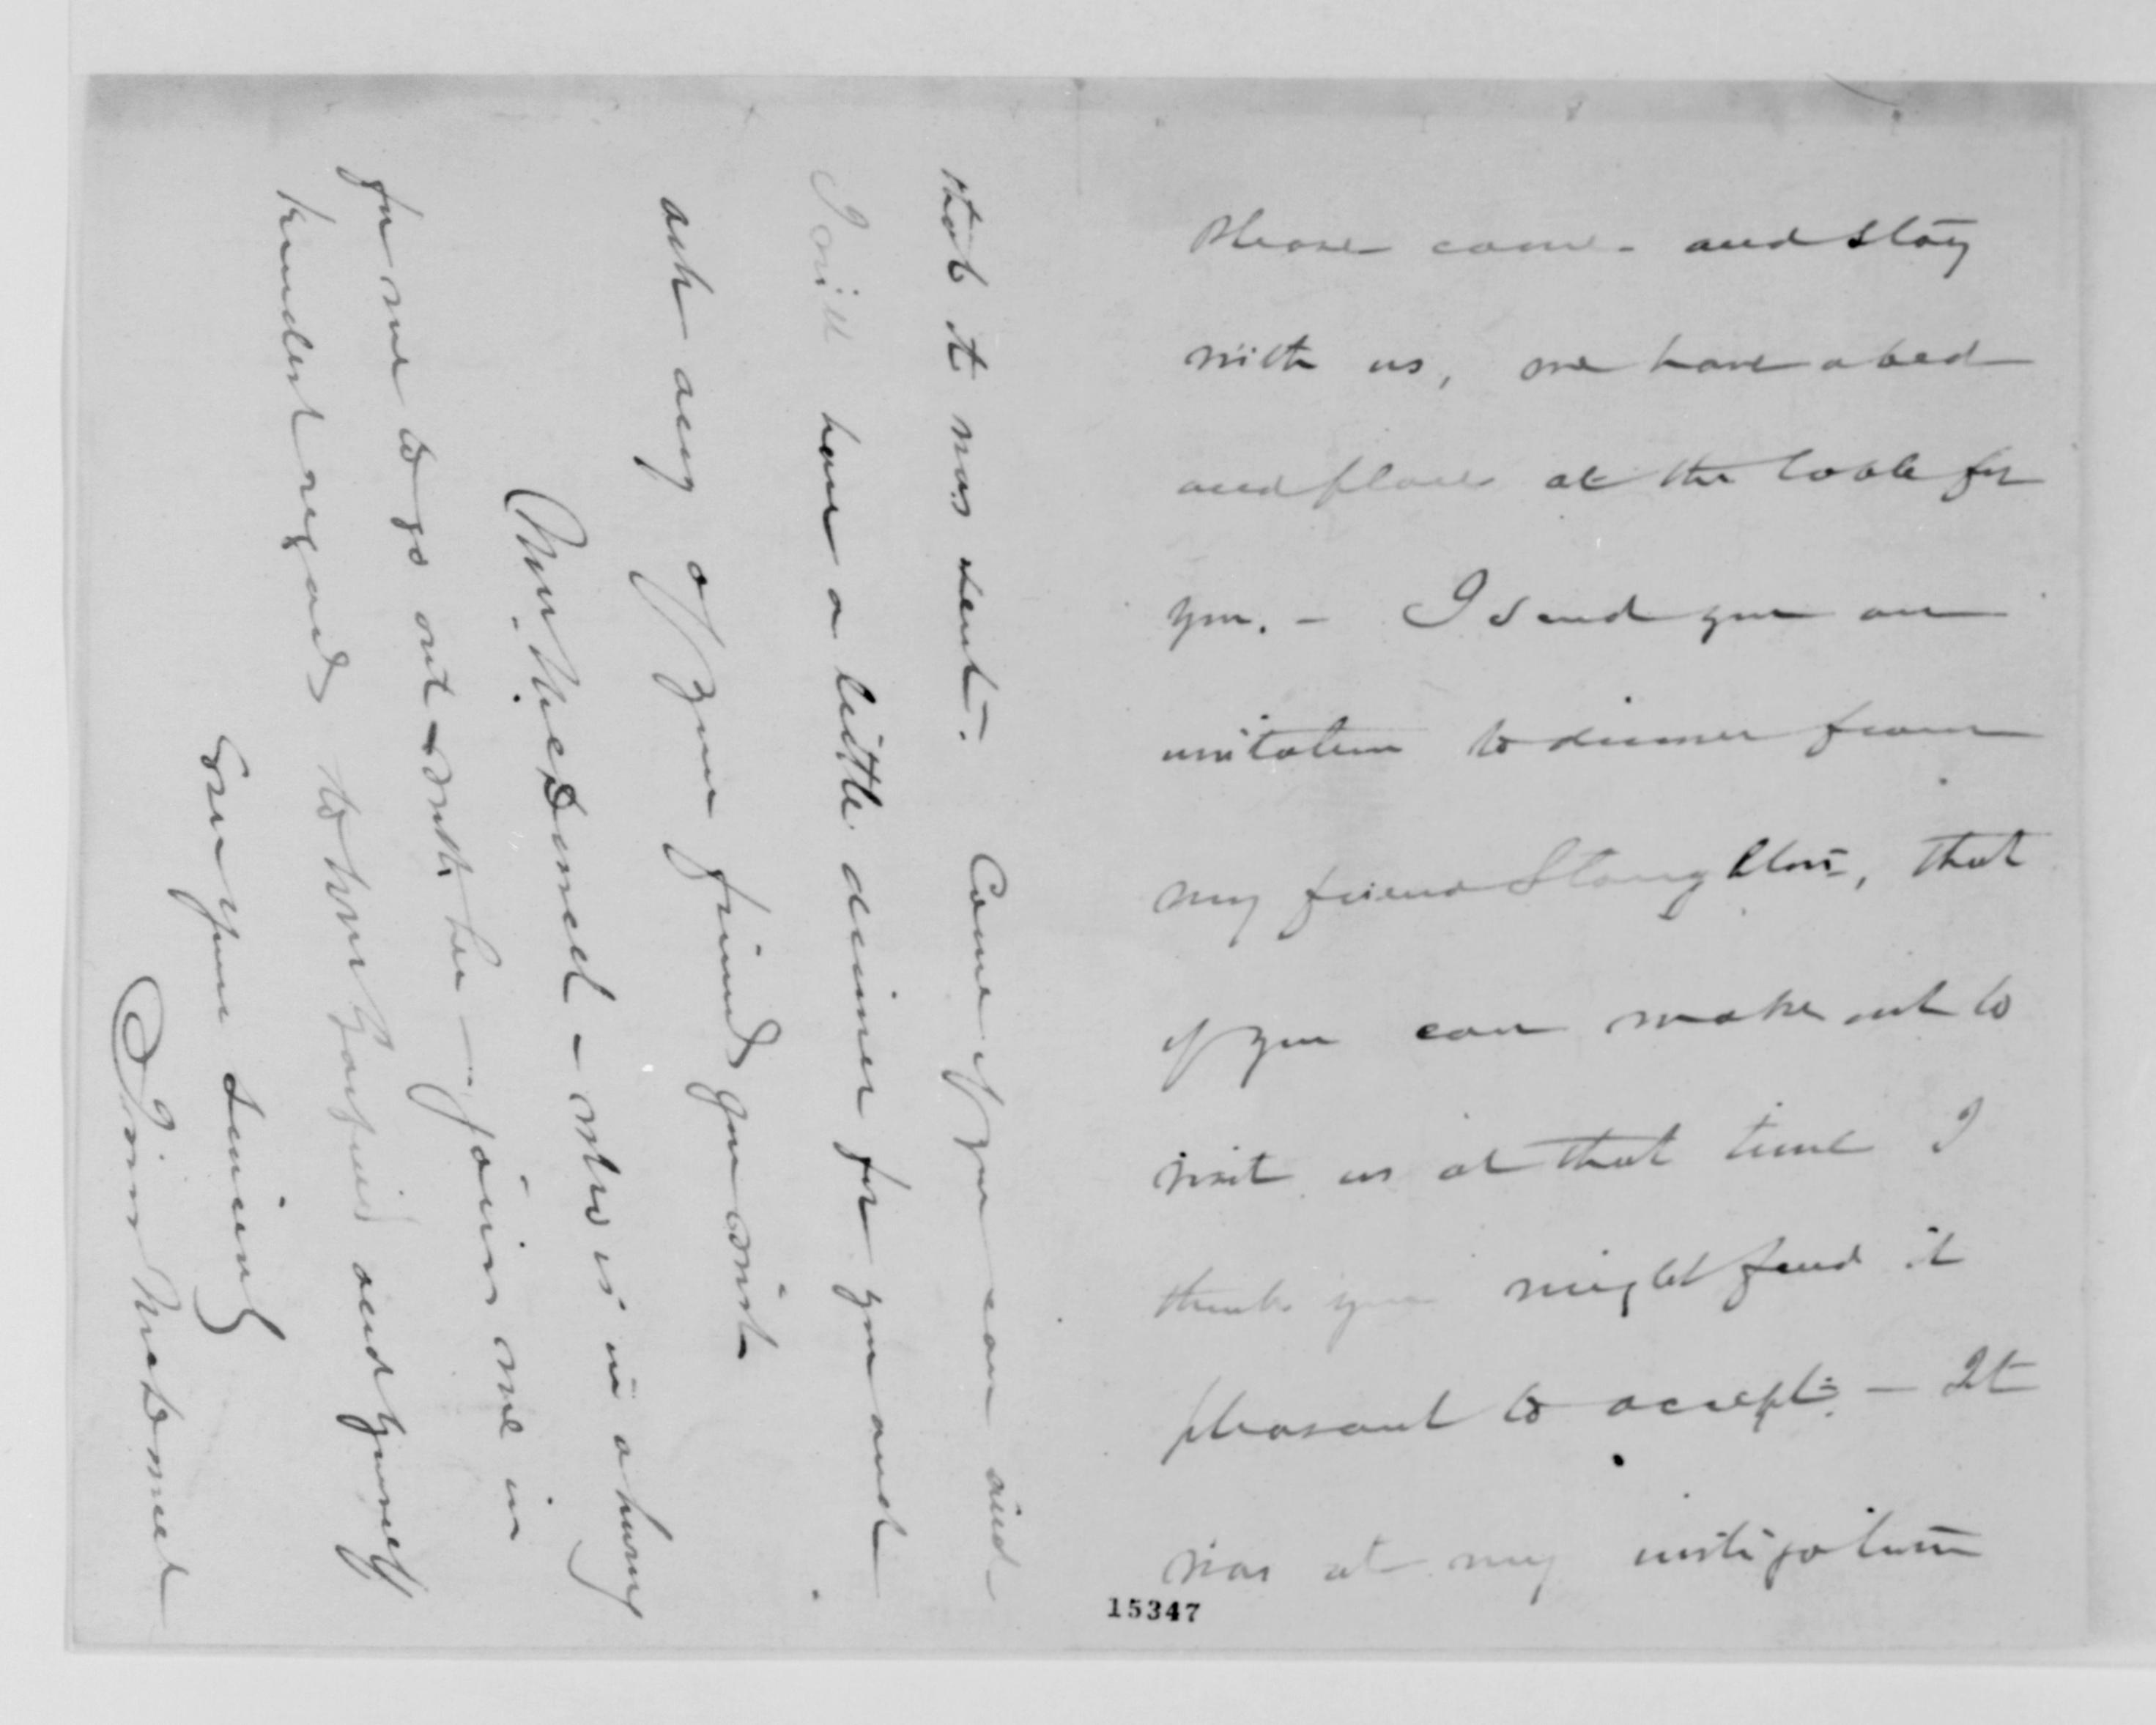 Please come - and stay
with us, we have a bed
and place at the table for
you. - I send you an
invitation to dinner from
my friend Stoughton, that
if you can make out to
visit us at that time I
think you might find it
pleasant to accept. - It
was at my instigation
15347
that it was sent. - Come if you can and
I will have a little dinner for you and
ask any of your friends you wish
Mrs. McDowell - who is in a hurry
for me to go out with her - joins me in
kindest regards to Mrs Garfield and yourself
Ever yours sincerely
Irvin McDowell